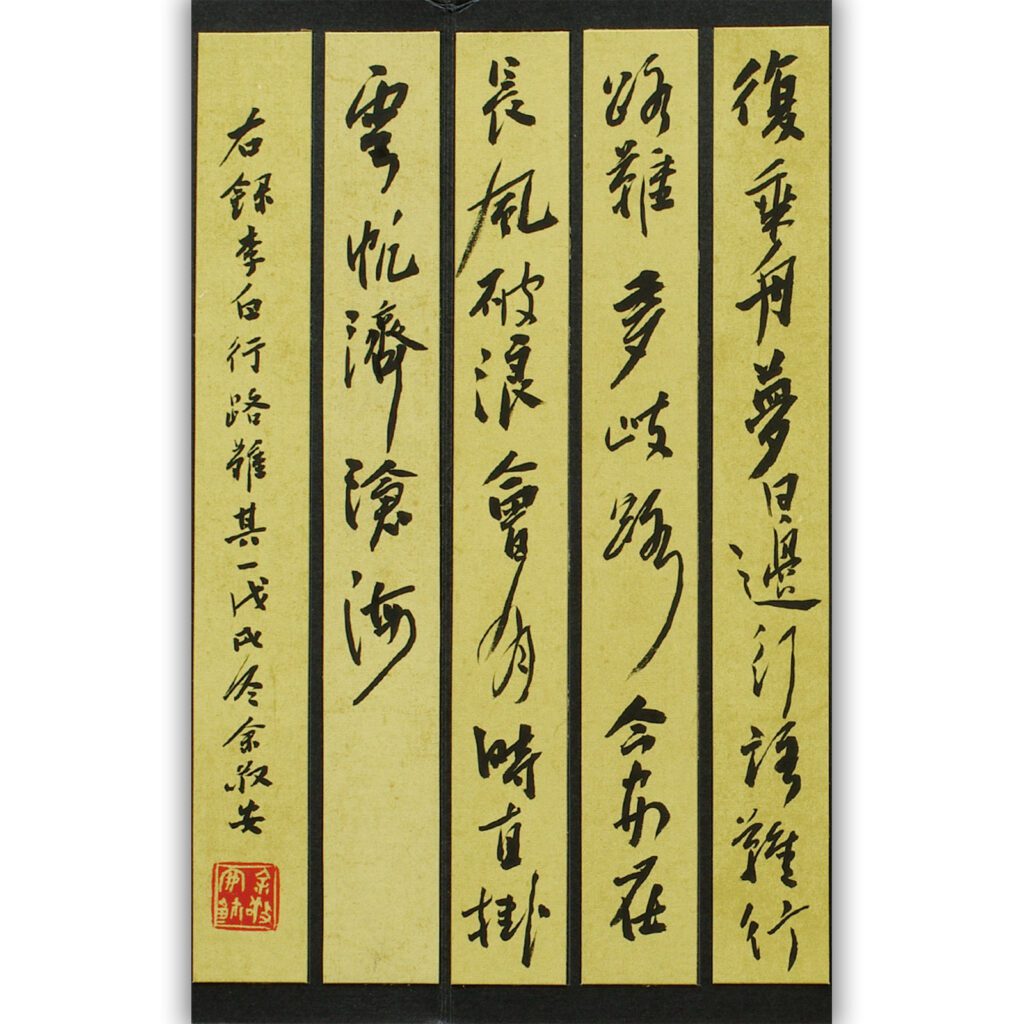 復乘舟夢日邊行路難行
路難多歧路今安在
長風破浪會有時直掛
雲帆濟滄海
右錄李白行路難其一戊戌冬余敬安